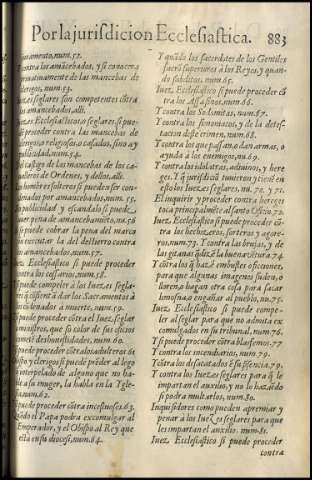 Por la jurisdicion Ecclesiastica. 883
amento, num. 52.
los amãcebados, y si conocera
priuatiuamente de las mancebas de
clerigos, num. 53.
seglares son competentes cõtra
los amãcebados, alli.
Ecclesiastico o seglares, si pue-
proceder contra las mancebas de
religiosos, o casados, sino ay
num. 54.
castigo de las mancebas de los ca-
de Ordenes, y dellos, alli.
hombres solteros si pueden ser con-
denados por amancebados, num. 55.
publicidad y escandalo si puede
pena de amancebamiẽto, nu. 56
si puede cobrar la pena del marco
executar la del destierro contra
amancebados, num. 57.
Ecclesiastico si puede proceder
cõtra los cessarios, num. 58.
puede compeler a los Iuezes segla-
res q̃ cõsientã dar los Sacramentos à
condenados a muerte, num. 59.
puede proceder cõtra el Iuez, seglar
ministros, que so color de sus oficios
deshonestidades, num. 60.
puede proceder cõtra los adulteros. 61
y clerigos si puede prẽder al lego
interpelado de alguno que no ha-
ble a su muger, la habla en la Ygle-
num. 62.
puede proceder cõtra incestuosos. 63.
el Papa podra excomulgar al
Emperador, y el Obispo al Rey que
està en su diocesi, num. 64.
Y quãdo los sacerdotes de los Gentiles
superiores à los Reyes, y quan-
do subditos, num. 65.
Iuez, Ecclesiastico si puede proceder cõ
tra los Assasinos, num. 66.
Y contra los Sodomitas, num. 67.
Y contra los simoniacos, y de la detes-
tacion deste crimen, num. 68.
Y contra los que passan, o dan armas, o
ayuda a los enemigos, nu. 69.
Y contra los idolatras, adiuinos, y here
ges. Y q̃ jurisdiciõ tuuieron y tienẽ en
esto los Iuezes seglares, nu. 70. y 71.
El inquirir y proceder contra hereges
toca principalmẽte al santo Oficio, 72.
Iuez, Ecclesiastico si puede proceder cõ-
tra los hechizeros, sorteros y agore-
ros, num. 73. Y contra las brujas, y de
las gitanas q̃ dizẽ la buenauẽtura. 74.
Y cõtra los q̃ hazẽ embustes oficiones,
para que algunas imagenes suden, o
lloren, o hagan otra cosa para sacar
limosna, o engañar al pueblo, nu. 75.
Iuez, Ecclesiastico si puede compe-
ler al seglar para que no admita ex
comulgados en su tribunal, num. 76.
Y si puede proceder cõtra blasfemos. 77
Y contra los incendiarios, num. 78.
Y cõtra los desacatados ẽ su presẽcia, 79.
Y contra los Iuezes seglares para q̃ le
impartan el auxilio, y no lo haziẽdo
si podra multarlos, num. 80.
Inquisidores como pueden apremiar y
penar à los Iuezes seglares para que
les impartan el auxilio. num. 81.
Iuez, Ecclesiastico si puede proceder
contra